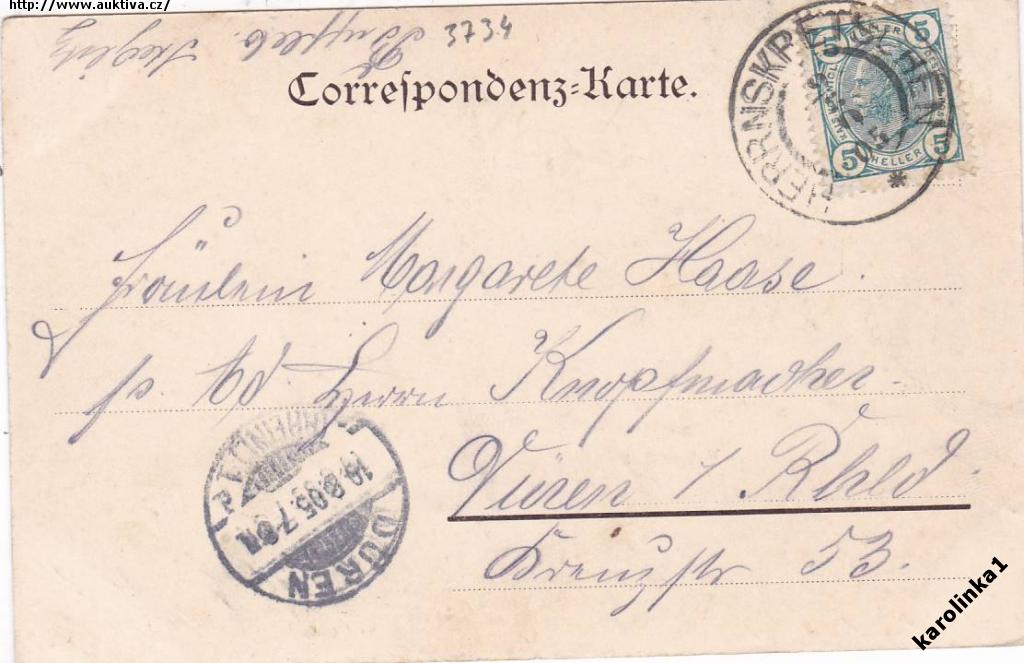 http://www.auktiva.cz/
3734
Correspondenz-Karte.
HERRNSKRETSCHEN
5 5
5 HELLER 5
Fräulein Margarete Haase.
p. Ad Herrn Knopfmacher.
Düren / Rhld
Kreuzstr 53.
(RHEINL.)
19.8.05.7
DÜREN
karolinka1